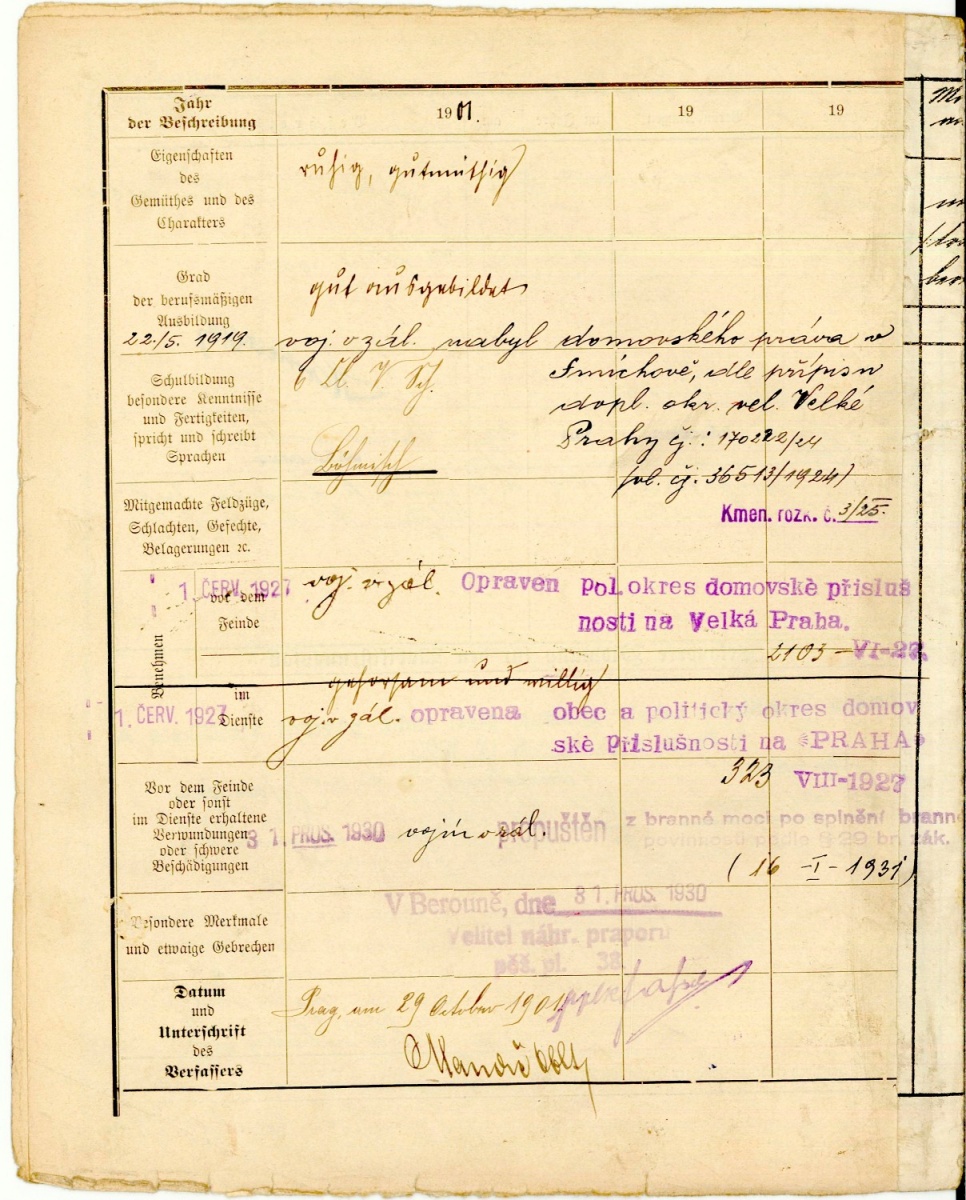 Jahr
der Beschreibung
1901.
19
19
Eigenschaften
des
Gemüthes und des
Charakters
ruhig, gutmüthig
Grad
der berufsmäßigen
Ausbildung
gut ausgebildet
22./5. 1919.
voj. v zál. nabyl domovského práva v
Smíchově, dle přípisu
dopl. okr. vel. Velké
Prahy čj.: 170222/24
čj. 36513/1924)
Kmen. rozk. č. 3/25.
Schulbildung
besondere Kenntnisse
und Fertigkeiten,
spricht und schreibt
Sprachen
6 Cl. V. Sch.
Böhmisch
Mitgemachte Feldzüge,
Schlachten, Gefechte,
Belagerungen ꝛc.
Benehmen
vor dem
Feinde
1. ČERV. 1927
voj. v zál. Opraven pol. okres domovské přísluš
nosti na Velká Praha.
2103 - VI-27.
gehorsam und willig
im
Dienste
1. ČERV. 1927
voj. v zál. opravena obec a politický okres domov
ské příslušnosti na «PRAHA»
323 VIII-1927
Vor dem Feinde
oder sonst
im Dienste erhaltene
Verwundungen
oder schwere
Beschädigungen
31. PROS. 1930 vojín v zál. propuštěn z branné moci po splnění branné
povinnosti podle § 29 br. zák.
(16 - I - 1931)
V Berouně, dne 31. PROS. 1930
Velitel náhr. praporu
pěš. pl. 38.
Besondere Merkmale
und etwaige Gebrechen
Datum
und
Unterschrift
des
Verfassers
Prag, am 29 October 1901.